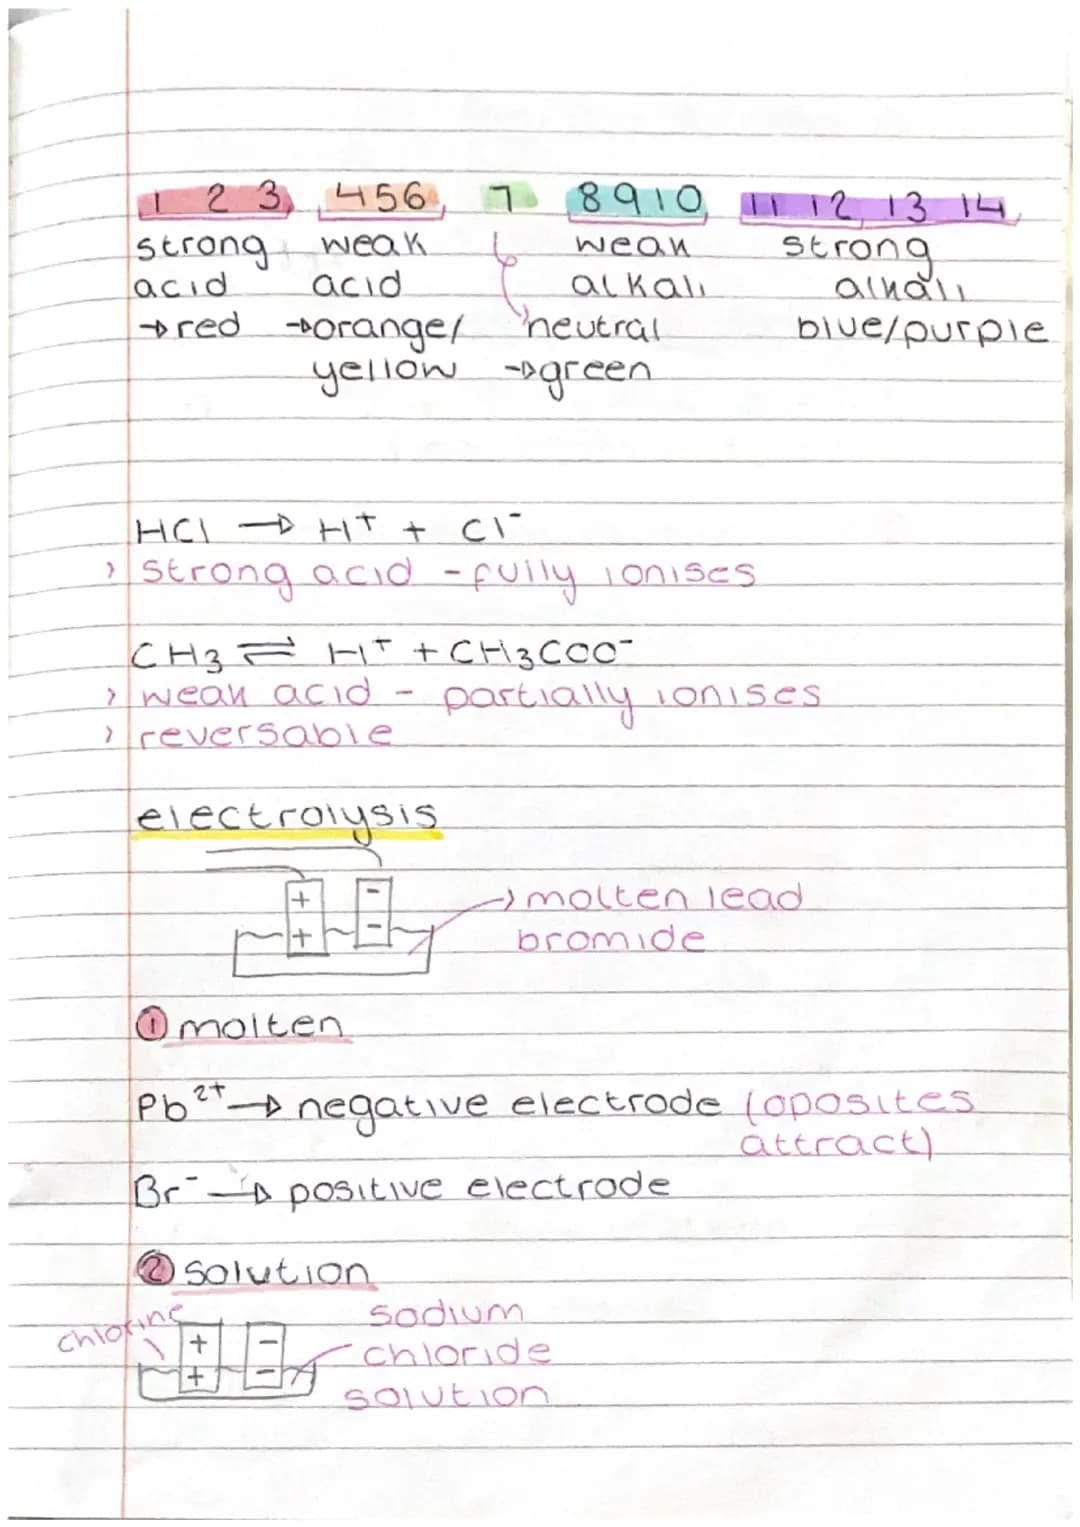 1 2 3 4 5 6 7 8 9 10 11 12 13 14
strong weak weak strong
acid acid alkali alkali
→red →orange/ neutral blue/purple
yellow →green
HCl → H⁺ + Cl⁻
> strong acid - fully ionises
CH₃ ⇌ H⁺ + CH₃COO⁻
> weak acid - partially ionises
> reversable
electrolysis
+ -
→ molten lead
+ -
bromide
① molten
Pb²⁺ → negative electrode (oposites
attract)
Br⁻ → positive electrode
② solution
chlorine
sodium
+ -
chloride
+ -
solution